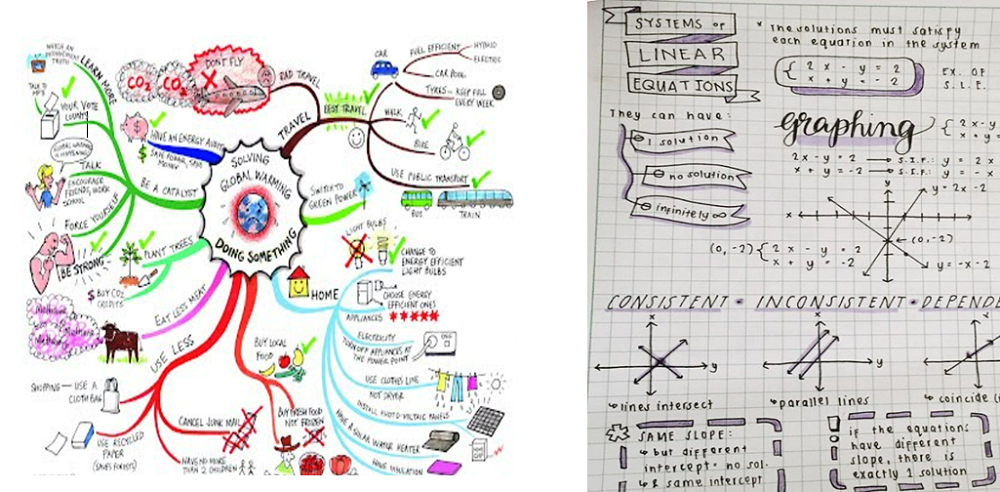 SOLVING
GLOBAL WARMING
DOING SOMETHING
LEARN MORE
TALK TO MP'S
YOUR VOTE
COUNTS
TALK
ENCOURAGE
FRIENDS, WORK
SCHOOL
FORCE YOURSELF
BE STRONG
BE A CATALYST
HAVE AN ENERGY AUDIT
SAVE POWER, SAVE
MONEY
PLANT TREES
BUY CO2
CREDITS
EAT LESS MEAT
USE LESS
SHOPPING — USE A
CLOTH BAG
USE RECYCLED
PAPER
(SAVES FORESTS)
CANCEL JUNK MAIL
HAVE NO MORE
THAN 2 CHILDREN
BUY LOCAL
FOOD
BUY FRESH FOOD
NOT FROZEN
DON'T FLY
CO2
CO2
BAD TRAVEL
TRAVEL
BEST TRAVEL
CAR
FUEL EFFICIENT
HYBRID
ELECTRIC
CAR POOL
TYRES - KEEP FULL
EVERY WEEK
WALK
BIKE
USE PUBLIC TRANSPORT
BUS
TRAIN
SWITCH TO
GREEN POWER
LIGHT BULBS
CHANGE TO
ENERGY EFFICIENT
LIGHT BULBS
HOME
CHOOSE ENERGY
EFFICIENT ONES
APPLIANCES
ELECTRICITY
TURN OFF APPLIANCES AT
THE POWER POINT
USE CLOTHES LINE
NOT DRYER
INSTALL PHOTO-VOLTAIC PANELS
HAVE A SOLAR WATER HEATER
HAVE INSULATION
SYSTEMS OF
LINEAR
EQUATIONS
* The solutions must satisfy
each equation in the system
{ 2x - y = 2
x + y = -2
EX. OF
S.L.E.
They can have:
1 solution
no solution
infinitely ∞
graphing
{ 2x - y
x + y
2x - y = 2 → S.I.F.: y = 2x
x + y = -2 → S.I.F.: y = -x
y
y = 2x - 2
x
(0, -2)
y = -x - 2
(0, -2) { 2x - y = 2
x + y = -2
CONSISTENT • INCONSISTENT • DEPENDE
x
y
x
y
↪ lines intersect
↪ parallel lines
↪ coincide
SAME SLOPE:
↪ but different
intercept = no sol.
↪ & same intercept
if the equations
have different
slope, there is
exactly 1 solution